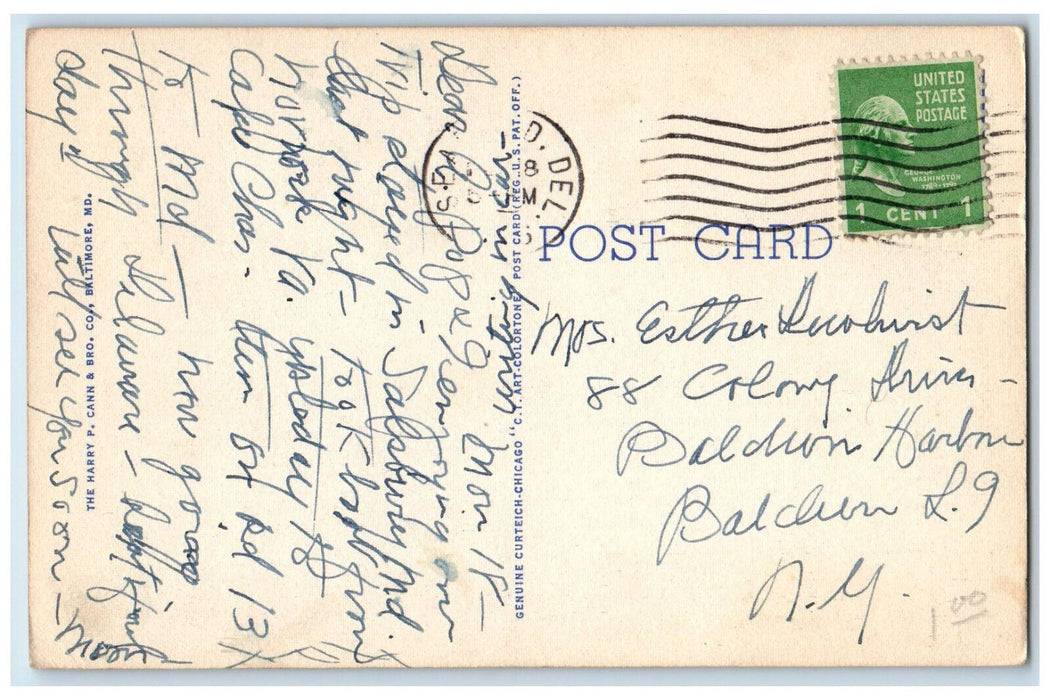 Mon 18 –
Dear D J & J enjoying our
Trip stayed in Salsbury Md.
last night – Took boat from
Norfolk Va. yesterday to
Cape Chas – then on Rd 13
to Md – now going
through Delaware –
day will see you soon –
Mother
GENUINE CURTEICH-CHICAGO "C.T. ART-COLORTONE" POST CARD (REG. U.S. PAT. OFF.)
THE HARRY P. CANN & BRO. CO., BALTIMORE, MD.
SEA D, DEL.
8
M
UNITED
STATES
POSTAGE
GEORGE
WASHINGTON
1789-1797
1 CENT 1
POST CARD
Mrs. Esther
88 Colony Drive –
Baldwin Harbor
Baldwin L.I
N.Y.
1 00